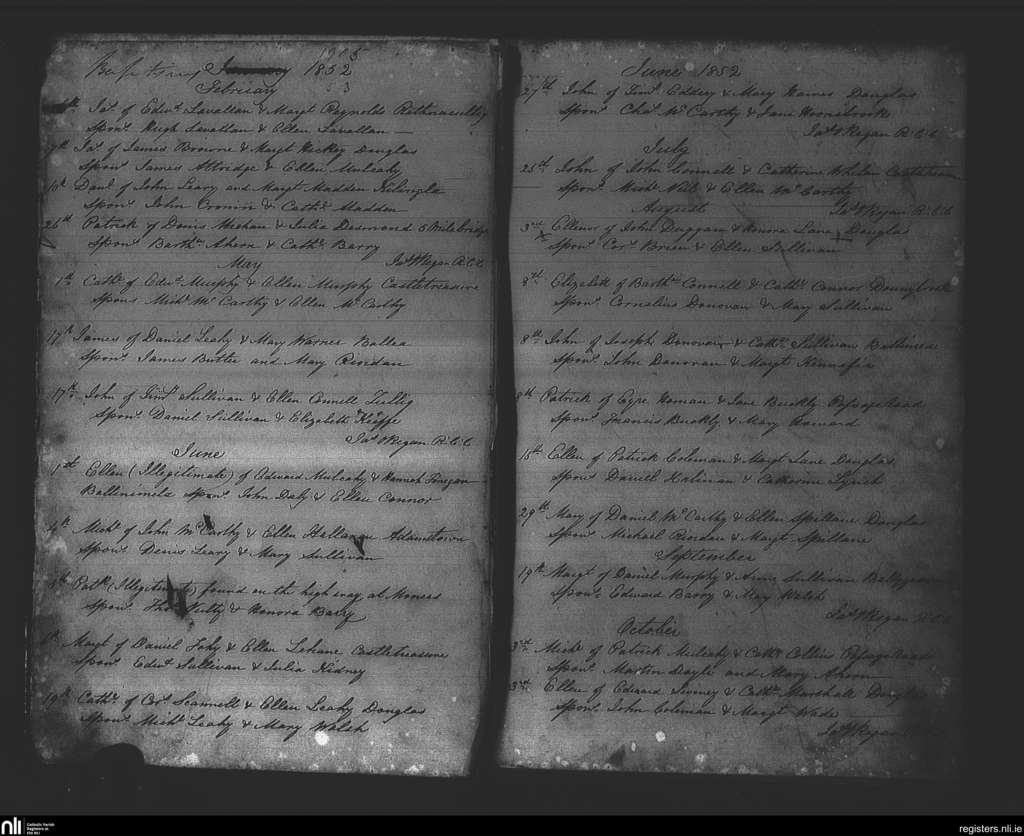 1905
Baptisms January 1852
February 53
Jas. of Edwd. Lavallan & Margt Reynolds
Spons. Hugh Lavallan & Ellen Lavallan
9th Jas. of James Browne & Margt Hickey Douglas
Spons. James Attridge & Ellen Mulcahy
10th Danl. of John Leary and Margt Madden
Spons. John Cronin & Cathe. Madden
26th Patrick of Denis Meehan & Julia Desmond 5 Milebridge
Spons. Barthw. Ahern & Cathe. Barry
May Jas. O'Regan R.C.C.
1st Cathe. of Edwd. Murphy & Ellen Murphy Castletreasure
Spons Michl. McCarthy & Ellen McCarthy
17th James of Daniel Leahy & Mary Warner Ballea
Spons. James Butler and Mary Riordan
17th John of Timy. Sullivan & Ellen Connell Tullig
Spons. Daniel Sullivan & Elizabeth Keeffe
Jas. O'Regan R.C.C.
June
1st Ellen (Illegitimate) of Edward Mulcahy & Hannah Finegan
Ballinimila Spons. John Daly & Ellen Connor
4th Michl. of John McCarthy & Ellen Hallanan Adamstown
Spons. Denis Leary & Mary Sullivan
Patk. (Illegitimate) found on the high way at Monees
Spons. Thos. Nulty & Honora Barry
Margt of Daniel Fohy & Ellen Lehane Castletreasure
Spons. Edwd. Sullivan & Julia Hidney
19th Cathe. of Cors. Scannell & Ellen Leahy Douglas
Spons. Michl. Leahy & Mary Welsh
June 1852
27th John of Timy. Coldery & Mary Haines Douglas
Spons. Chas. McCarthy & Jane
Jas. O'Regan R.C.C.
July
25th John of John Connell & Catherine Whelan Castletreasure
Spons. Michl. Neil & Ellen McCarthy
August Jas. O'Regan R.C.C.
3rd Ellenor of John Duggan & Honora Lane Douglas
Spons. Cors. Brien & Ellen Sullivan
8th Elizabeth of Barthw. Connell & Cathe. Connor Donnybrook
Spons. Cornelius Donovan & Mary Sullivan
8th John of Joseph Donovan & Cathe. Sullivan
Spons. John Donovan & Margt Kennefic
8th Patrick of Eyre Homan & Jane Buckly Passage Road
Spons. Francis Buckly & Mary Howard
15th Ellen of Patrick Coleman & Margt Lane Douglas
Spons Daniel Halinan & Catherine Lynch
29th Mary of Daniel McCarthy & Ellen Spillane Douglas
Spons. Michael Riordan & Margt Spillane
September
19th Margt of Daniel Murphy & Anne Sullivan
Spons. Edward Barry & May Welsh
Jas. O'Regan R.C.C.
October
3rd Michl. of Patrick Mulcahy & Cathe. Collins Passage Road
Spons. Martin Doyle and Mary Ahern
3rd Ellen of Edward Swiney & Cathe. Marshall Douglas
Spons. John Coleman & Margt Wade
Jas. O'Regan
nli Catholic Parish
Registers at
the NLI
registers.nli.ie